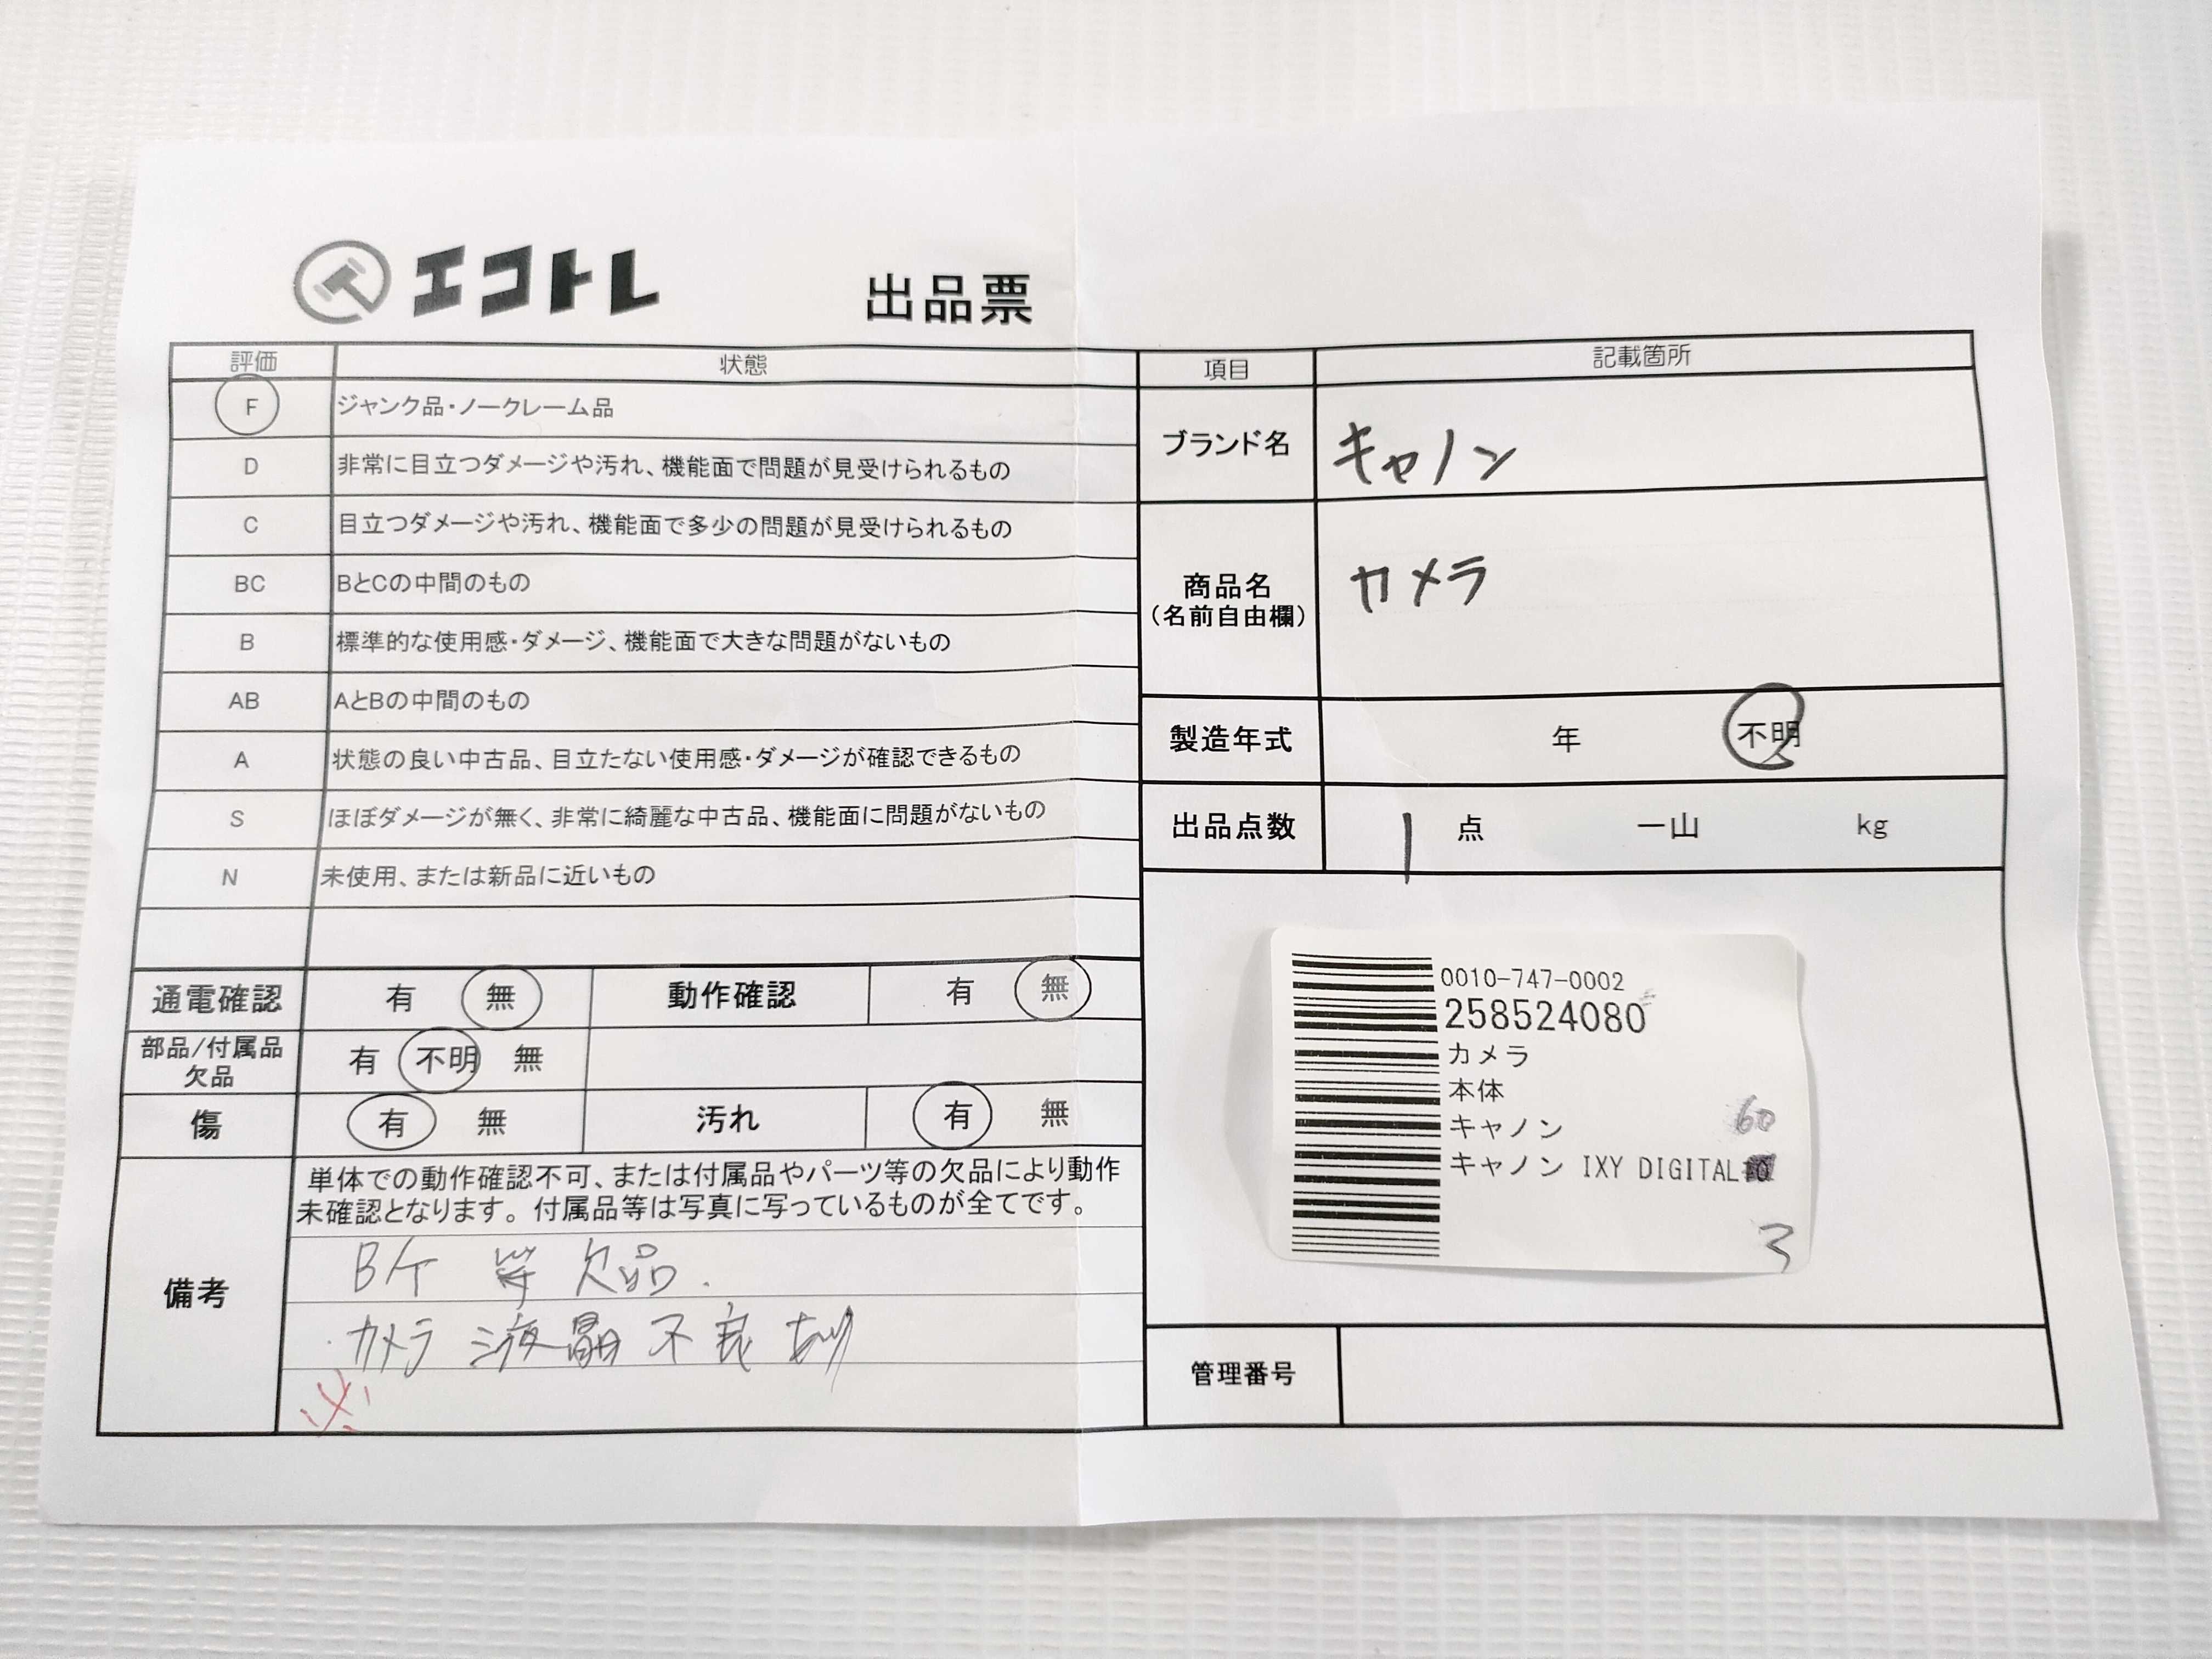 エコトレ
出品票
評価 状態
F ジャンク品・ノークレーム品
D 非常に目立つダメージや汚れ、機能面で問題が見受けられるもの
C 目立つダメージや汚れ、機能面で多少の問題が見受けられるもの
BC BとCの中間のもの
B 標準的な使用感・ダメージ、機能面で大きな問題がないもの
AB AとBの中間のもの
A 状態の良い中古品、目立たない使用感・ダメージが確認できるもの
S ほぼダメージが無く、非常に綺麗な中古品、機能面に問題がないもの
N 未使用、または新品に近いもの
通電確認 有 無 動作確認 有 無
部品/付属品
欠品
有 不明 無
傷 有 無 汚れ 有 無
備考
単体での動作確認不可、または付属品やパーツ等の欠品により動作
未確認となります。付属品等は写真に写っているものが全てです。
B/ケ 等 欠品.
・カメラ 液晶不良あり
※
項目 記載箇所
ブランド名 キャノン
商品名
(名前自由欄)
カメラ
製造年式 年 不明
出品点数 1 点 一山 kg
0010-747-0002
258524080
カメラ
本体
キャノン
60
キャノン IXY DIGITAL
3
管理番号